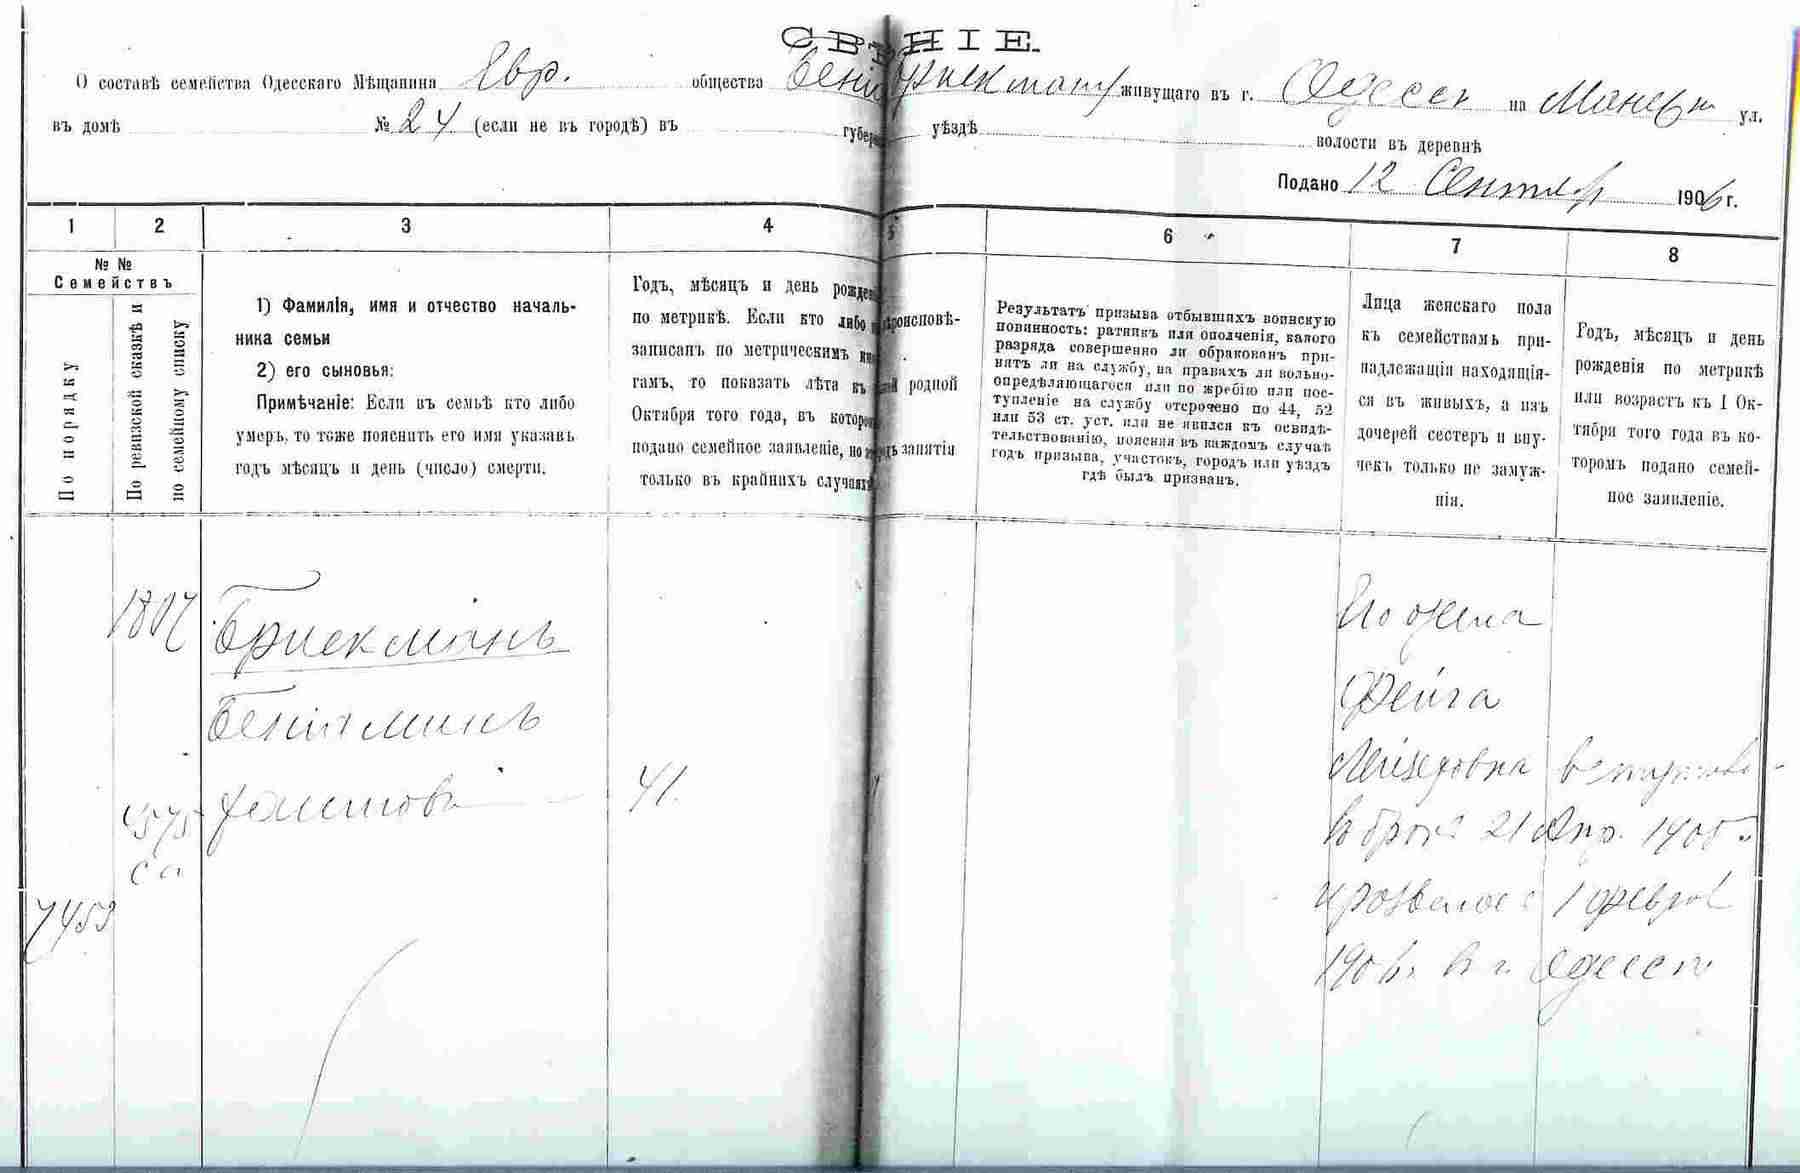 СВѢДѢНІЕ.
О составѣ семейства Одесскаго Мѣщанина Явр. общества Бені Брискманъ живущаго въ г. Одессѣ на ул.
въ домѣ № 24 (если не въ городѣ) въ уѣздѣ волости въ деревнѣ
Подано 12 Сентября 1906 г.
1 2 3 4 5 6 7 8
№ №
Семействъ
По порядку
По ревизской сказкѣ и
по семейному списку
1) Фамилія, имя и отчество началь-
ника семьи
2) его сыновья:
Примѣчаніе: Если въ семьѣ кто либо
умеръ, то тоже пояснить его имя указавъ
годъ мѣсяцъ и день (число) смерти.
Годъ, мѣсяцъ и день рожде
по метрикѣ. Если кто либо
записанъ по метрическимъ
гамъ, то показать лѣта къ
Октября того года, въ котор
подано семейное заявленіе, но
только въ крайнихъ случаяхъ
роисповѣ-
родной
занятія
Результатъ призыва отбывшихъ воинскую
повинность: ратникъ или ополченія, какого
разряда совершенно ли обракованъ при-
нятъ ли на службу, на правахъ ли вольно-
опредѣляющагося или по жребію или пос-
тупленіе на службу отсрочено по 44, 52
или 53 ст. уст. или не явился къ освидѣ-
тельствованію, поясняя въ каждомъ случаѣ
годъ призыва, участокъ, городъ или уѣздъ
гдѣ былъ призванъ.
Лица женскаго пола
къ семействамъ при-
надлежащія находящія-
ся въ живыхъ, а изъ
дочерей сестеръ и вну-
чекъ только не замуж-
нія.
Годъ, мѣсяцъ и день
рожденія по метрикѣ
или возрастъ къ 1 Ок-
тября того года въ ко-
торомъ подано семей-
ное заявленіе.
Брискманъ
Беніаминъ
41.
4575
са
7453
Его жена
Фейга
вступила
въ бракъ 21 Апр. 1905 г.
1 февраля
1906 г. въ г. Одессѣ